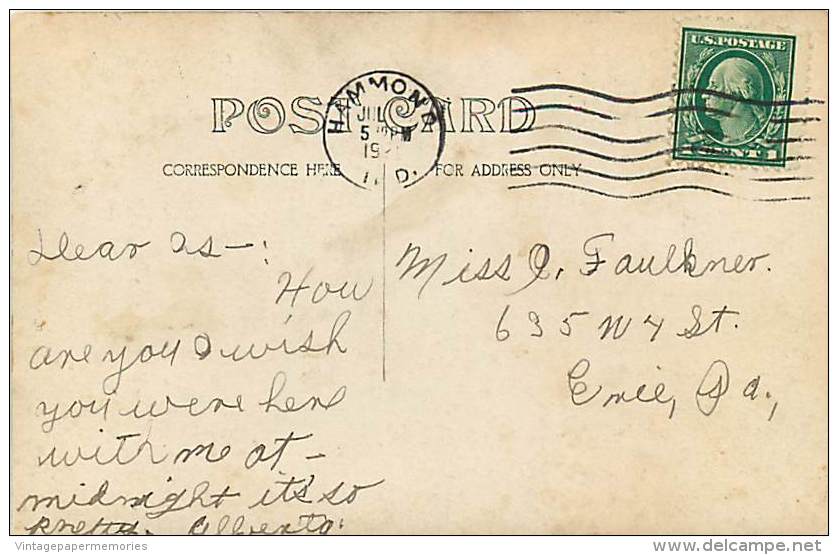 U.S. POSTAGE
HAMMOND
JUL
5 PM
IND.
POST CARD
CORRESPONDENCE HERE
FOR ADDRESS ONLY
Dear as—:
How
are you I wish
you were here
with me at—
midnight it's so
pretty. Alberta.
Miss I. Faulkner.
635 W 4 St.
Erie, Pa.,
CENT 1
Vintagepapermemories